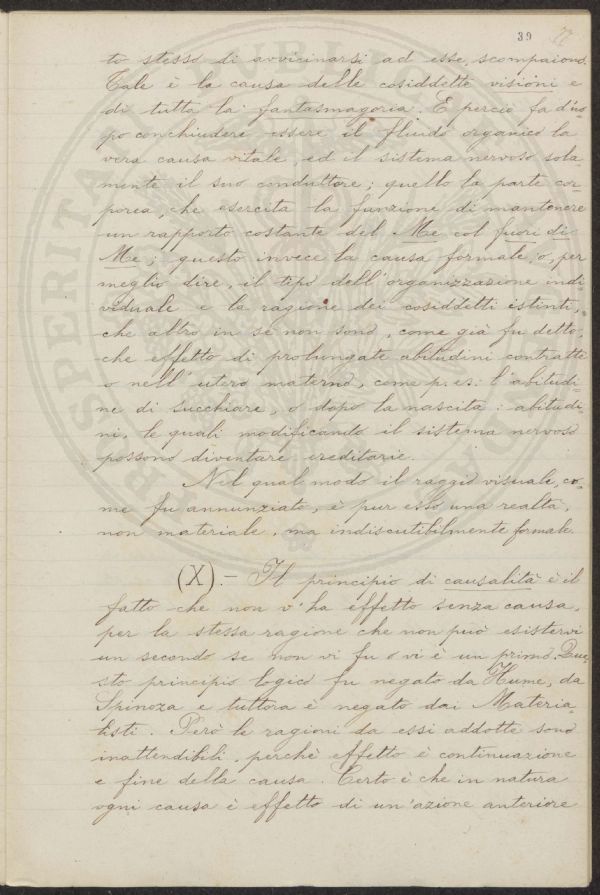 39 77
to stesso di avvicinarsi ad esse, scompaiono.
Tale è la causa delle cosiddette visioni e
di tutta la fantasmagoria. E perciò fa d'uo
po conchiudere essere il fluido organico la
vera causa vitale, ed il sistema nervoso sola=
mente il suo conduttore; quello la parte cor=
porea, che esercita la funzione di mantenere
un rapporto costante del Me col fuori di
Me; questo invece la causa formale, o, per
meglio dire, il tipo dell'organizzazione indi
viduale e la ragione dei cosiddetti istinti,
che altro in se non sono, come già fu detto,
che effetto di prolungate abitudini contratte
o nell'utero materno, come p. es: l'abitudi=
ne di succhiare, o dopo la nascita: abitudi
ni, le quali modificando il sistema nervoso
possono diventare ereditarie.
Nel qual modo il raggio visuale, co=
me fu annunziato, è pur esso una realtà,
non materiale, ma indiscutibilmente formale.
(X).- Il principio di causalità è il
fatto che non v'ha effetto senza causa,
per la stessa ragione che non può esistervi
un secondo se non vi fu o vi è un primo. Que=
sto principio logico fu negato da Hume, da
Spinoza e tuttora è negato dai Materia=
listi. Però le ragioni da essi addotte sono
inattendibili, perchè effetto è continuazione
e fine della causa. Certo è che in natura
ogni causa è effetto di un'azione anteriore